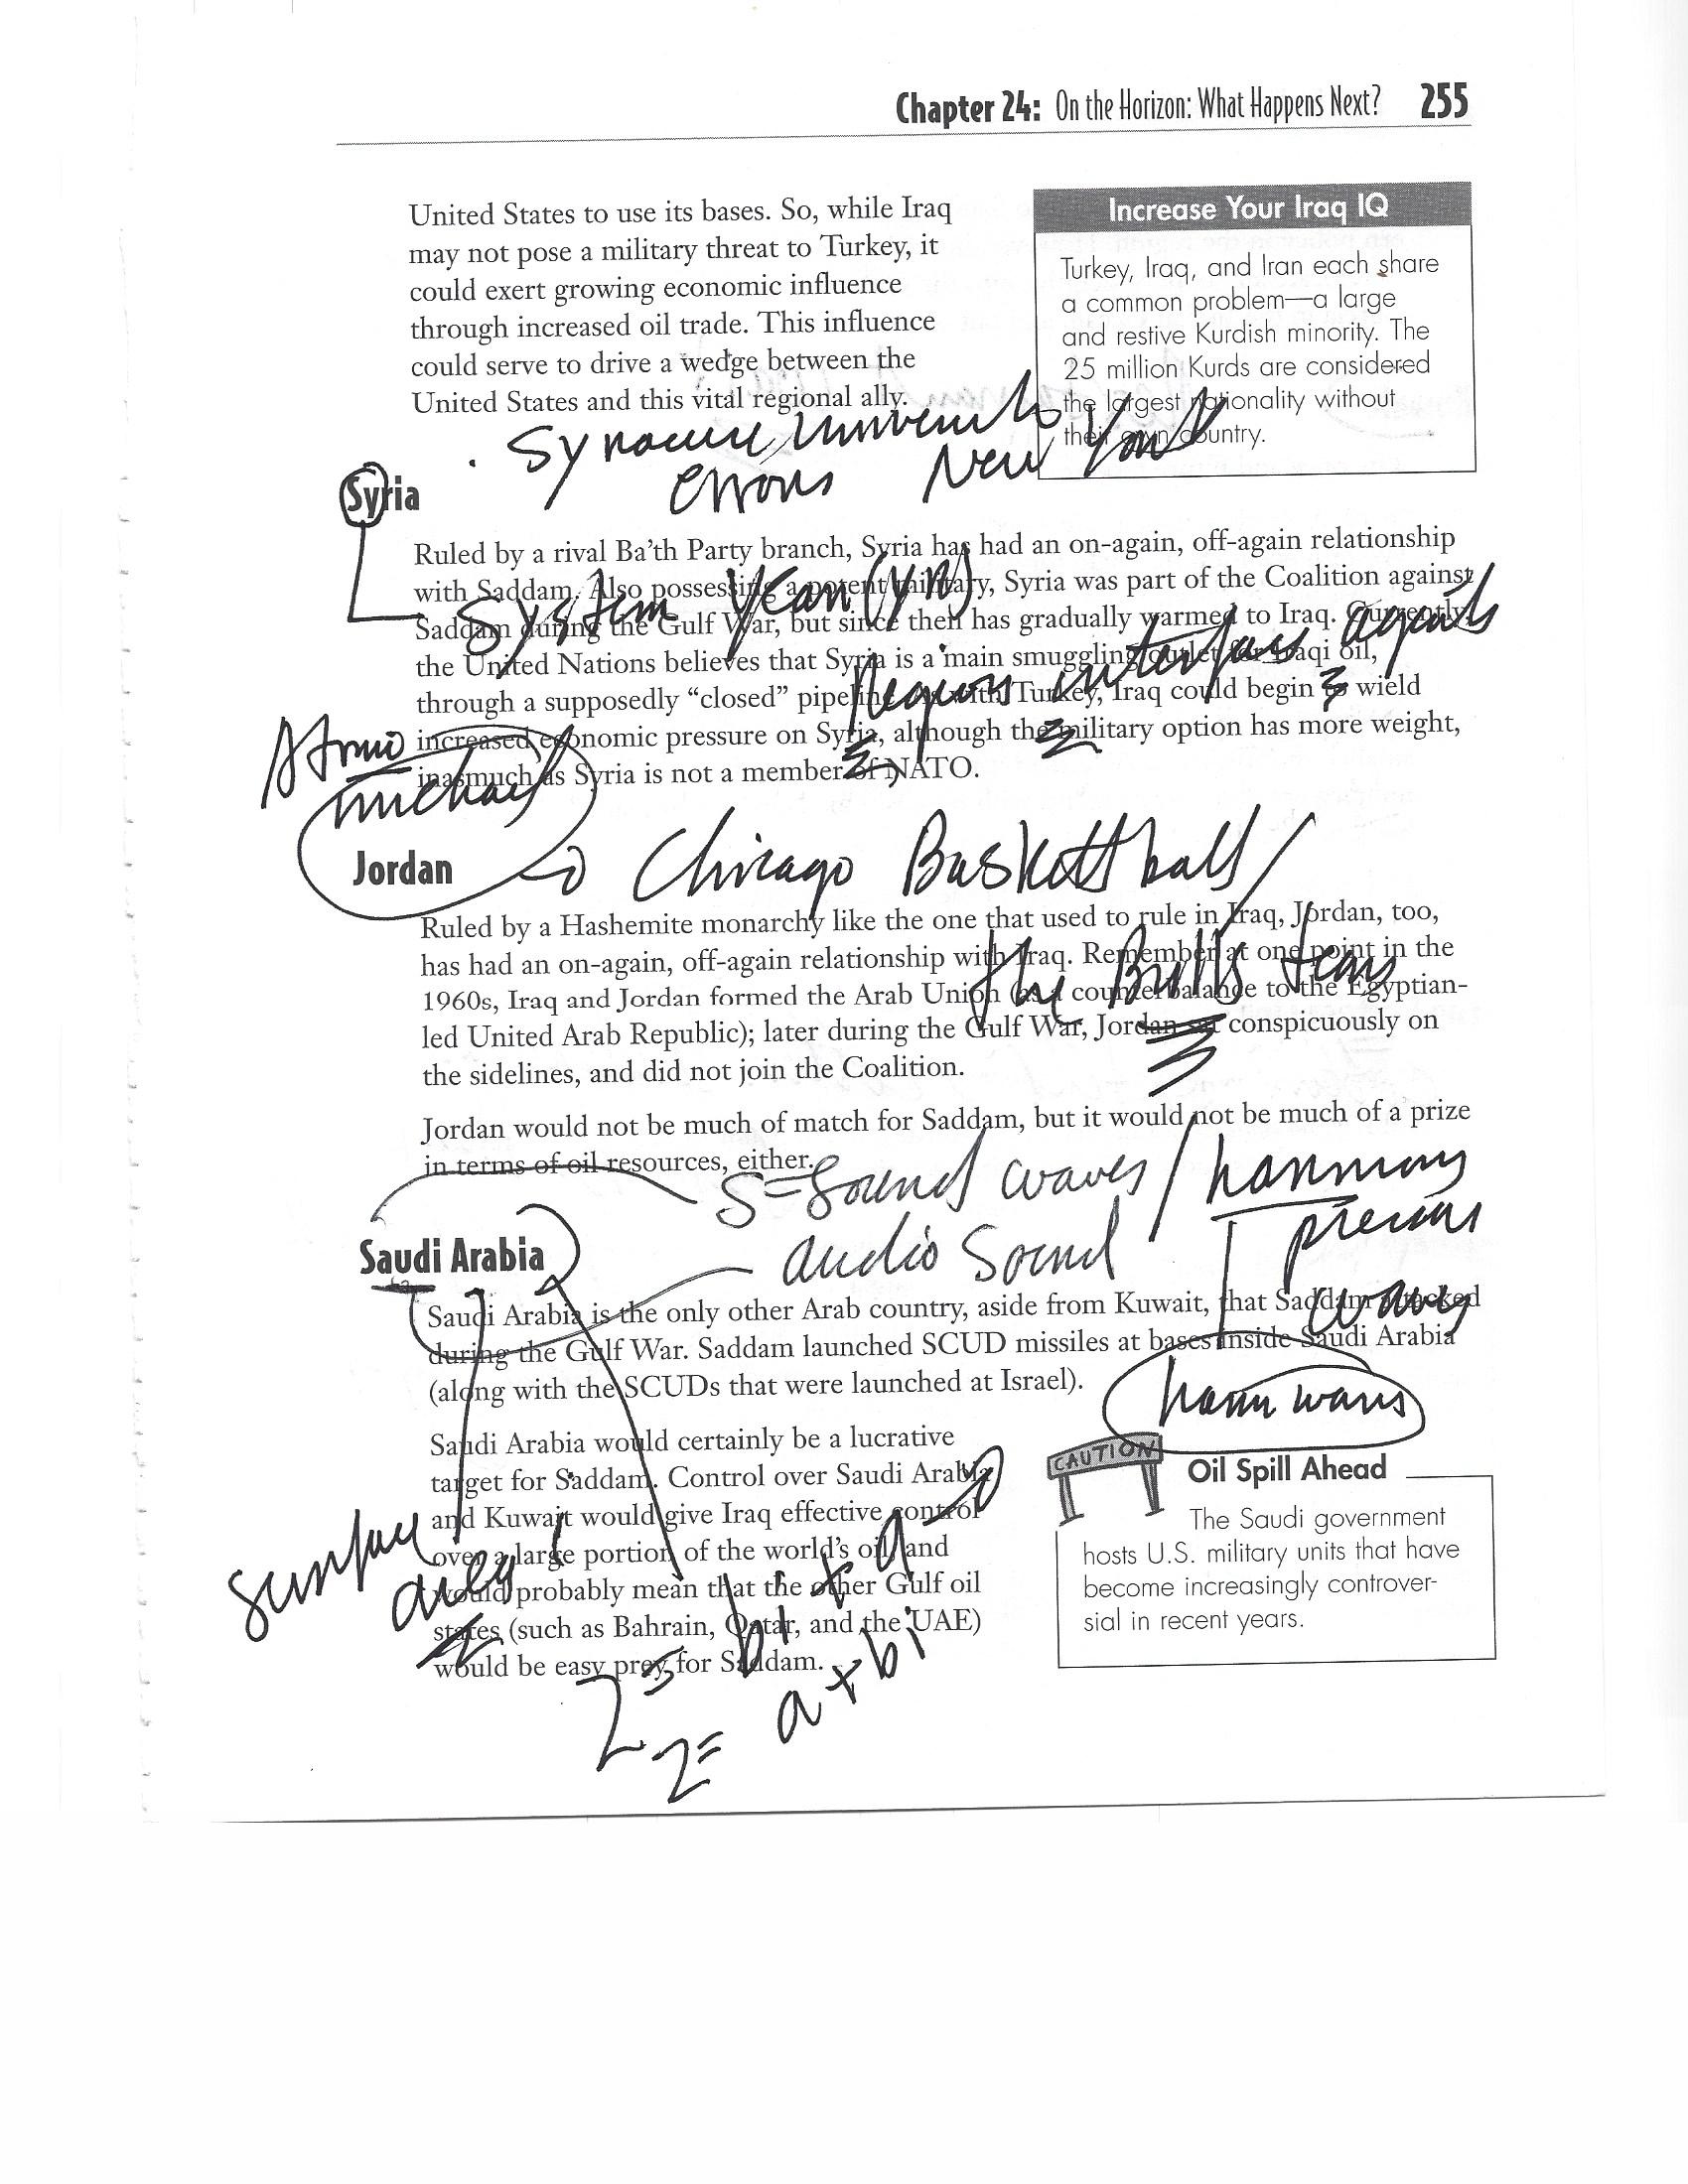 Chapter 24: On the Horizon: What Happens Next? 255
United States to use its bases. So, while Iraq
may not pose a military threat to Turkey, it
could exert growing economic influence
through increased oil trade. This influence
could serve to drive a wedge between the
United States and this vital regional ally.
Increase Your Iraq IQ
Turkey, Iraq, and Iran each share
a common problem—a large
and restive Kurdish minority. The
25 million Kurds are considered
the largest nationality without
their own country.
errors New York
Syria
Ruled by a rival Ba'th Party branch, Syria has had an on-again, off-again relationship
with Saddam. Also possessing a potent military, Syria was part of the Coalition against
System Year (yr)
Saddam during the Gulf War, but since then has gradually warmed to Iraq. Currently,
the United Nations believes that Syria is a main smuggling outlet for Iraqi oil,
agents
through a supposedly “closed” pipeline. As with Turkey, Iraq could begin to wield
increased economic pressure on Syria, although the military option has more weight,
inasmuch as Syria is not a member of NATO.
michael
Jordan
Chicago Baskettball/
Ruled by a Hashemite monarchy like the one that used to rule in Iraq, Jordan, too,
has had an on-again, off-again relationship with Iraq. Remember at one point in the
the Bulls team
1960s, Iraq and Jordan formed the Arab Union (as a counterbalance to the Egyptian-
led United Arab Republic); later during the Gulf War, Jordan sat conspicuously on
the sidelines, and did not join the Coalition.
Jordan would not be much of match for Saddam, but it would not be much of a prize
in terms of oil resources, either.
S=Sound waves / harmony
audio Sound
waves
Saudi Arabia
Saudi Arabia is the only other Arab country, aside from Kuwait, that Saddam attacked
during the Gulf War. Saddam launched SCUD missiles at bases inside Saudi Arabia
(along with the SCUDs that were launched at Israel).
Saudi Arabia would certainly be a lucrative
target for Saddam. Control over Saudi Arabia
and Kuwait would give Iraq effective control
over a large portion of the world's oil, and
would probably mean that the other Gulf oil
states (such as Bahrain, Qatar, and the UAE)
would be easy prey for Saddam.
area
Z = bi + a
z = a + bi
CAUTION
Oil Spill Ahead
The Saudi government
hosts U.S. military units that have
become increasingly controver-
sial in recent years.